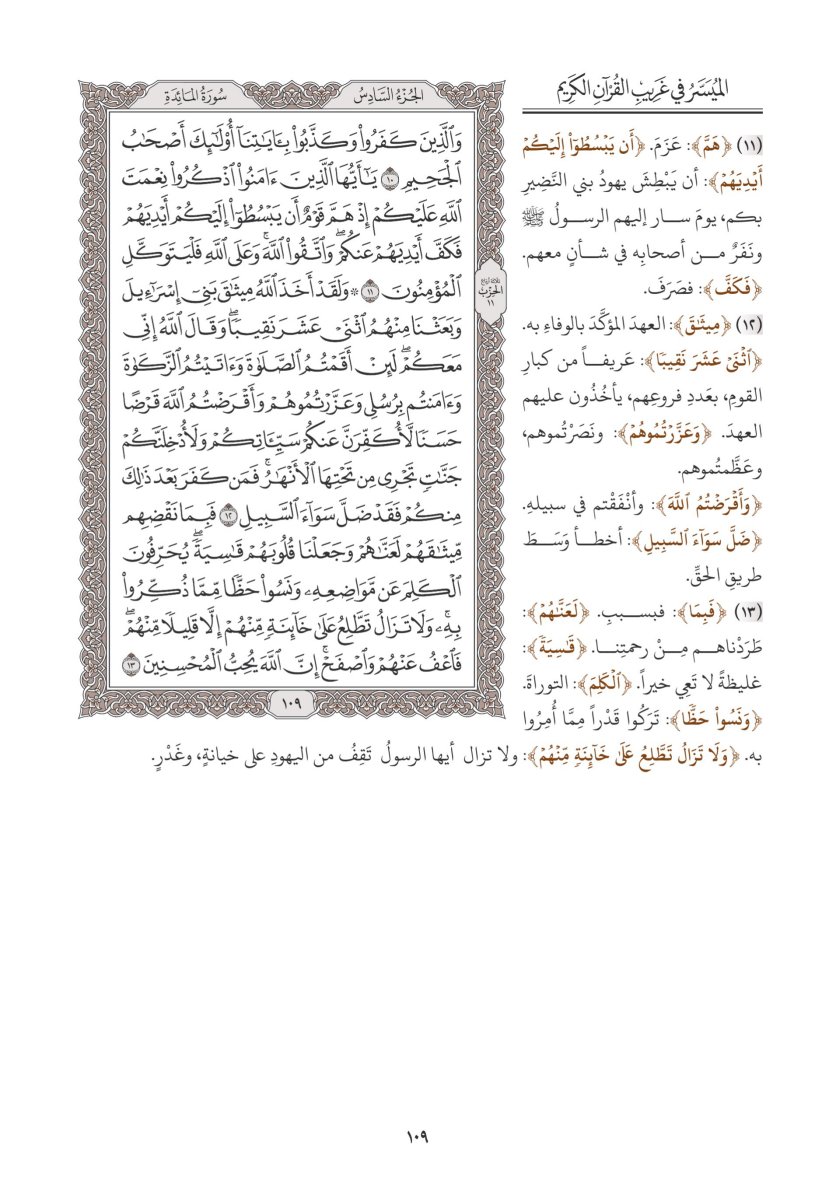 الميسر في غريب القرآن الكريم
الجزء السادس
سورة المائدة
وَٱلَّذِينَ كَفَرُوا۟ وَكَذَّبُوا۟ بِـَٔايَـٰتِنَآ أُو۟لَـٰٓئِكَ أَصْحَـٰبُ
ٱلْجَحِيمِ ١٠ يَـٰٓأَيُّهَا ٱلَّذِينَ ءَامَنُوا۟ ٱذْكُرُوا۟ نِعْمَتَ
ٱللَّهِ عَلَيْكُمْ إِذْ هَمَّ قَوْمٌ أَن يَبْسُطُوٓا۟ إِلَيْكُمْ أَيْدِيَهُمْ
فَكَفَّ أَيْدِيَهُمْ عَنكُمْ ۖ وَٱتَّقُوا۟ ٱللَّهَ ۚ وَعَلَى ٱللَّهِ فَلْيَتَوَكَّلِ
ٱلْمُؤْمِنُونَ ١١ ۞ وَلَقَدْ أَخَذَ ٱللَّهُ مِيثَـٰقَ بَنِىٓ إِسْرَٰٓءِيلَ
وَبَعَثْنَا مِنْهُمُ ٱثْنَىْ عَشَرَ نَقِيبًا ۖ وَقَالَ ٱللَّهُ إِنِّى
مَعَكُمْ ۖ لَئِنْ أَقَمْتُمُ ٱلصَّلَوٰةَ وَءَاتَيْتُمُ ٱلزَّكَوٰةَ
وَءَامَنتُم بِرُسُلِى وَعَزَّرْتُمُوهُمْ وَأَقْرَضْتُمُ ٱللَّهَ قَرْضًا
حَسَنًا لَّأُكَفِّرَنَّ عَنكُمْ سَيِّـَٔاتِكُمْ وَلَأُدْخِلَنَّكُمْ
جَنَّـٰتٍ تَجْرِى مِن تَحْتِهَا ٱلْأَنْهَـٰرُ ۚ فَمَن كَفَرَ بَعْدَ ذَٰلِكَ
مِنكُمْ فَقَدْ ضَلَّ سَوَآءَ ٱلسَّبِيلِ ١٢ فَبِمَا نَقْضِهِم
مِّيثَـٰقَهُمْ لَعَنَّـٰهُمْ وَجَعَلْنَا قُلُوبَهُمْ قَـٰسِيَةً ۖ يُحَرِّفُونَ
ٱلْكَلِمَ عَن مَّوَاضِعِهِۦ وَنَسُوا۟ حَظًّا مِّمَّا ذُكِّرُوا۟
بِهِۦ ۚ وَلَا تَزَالُ تَطَّلِعُ عَلَىٰ خَآئِنَةٍ مِّنْهُمْ إِلَّا قَلِيلًا مِّنْهُمْ ۖ
فَٱعْفُ عَنْهُمْ وَٱصْفَحْ ۚ إِنَّ ٱللَّهَ يُحِبُّ ٱلْمُحْسِنِينَ ١٣
ثلاثة أرباع
الحزب
١١
١٠٩
(١١) ﴿هَمَّ﴾: عَزَمَ. ﴿أَن يَبْسُطُوٓا۟ إِلَيْكُمْ
أَيْدِيَهُمْ﴾: أن يَبْطِشَ يهودُ بني النَّضِيرِ
بكم، يومَ سار إليهم الرسولُ ﷺ
ونَفَرٌ من أصحابِه في شأنٍ معهم.
﴿فَكَفَّ﴾: فصَرَفَ.
(١٢) ﴿مِيثَـٰقَ﴾: العهدَ المؤكَّدَ بالوفاءِ به.
﴿ٱثْنَىْ عَشَرَ نَقِيبًا﴾: عَريفاً من كبارِ
القومِ، بعددِ فروعِهم، يأخُذُون عليهم
العهدَ. ﴿وَعَزَّرْتُمُوهُمْ﴾: ونَصَرْتُموهم،
وعَظَّمتُموهم.
﴿وَأَقْرَضْتُمُ ٱللَّهَ﴾: وأنْفَقْتم في سبيلِه.
﴿ضَلَّ سَوَآءَ ٱلسَّبِيلِ﴾: أخطأ وَسَطَ
طريقِ الحقِّ.
(١٣) ﴿فَبِمَا﴾: فبسببِ. ﴿لَعَنَّـٰهُمْ﴾:
طَرَدْناهم مِنْ رحمتِنا. ﴿قَـٰسِيَةً﴾:
غليظةً لا تَعِي خيراً. ﴿ٱلْكَلِمَ﴾: التوراةَ.
﴿وَنَسُوا۟ حَظًّا﴾: تَرَكُوا قَدْراً مِمَّا أُمِرُوا
به. ﴿وَلَا تَزَالُ تَطَّلِعُ عَلَىٰ خَآئِنَةٍ مِّنْهُمْ﴾: ولا تزال أيها الرسولُ تَقِفُ من اليهودِ على خيانةٍ، وغَدْرٍ.
١٠٩